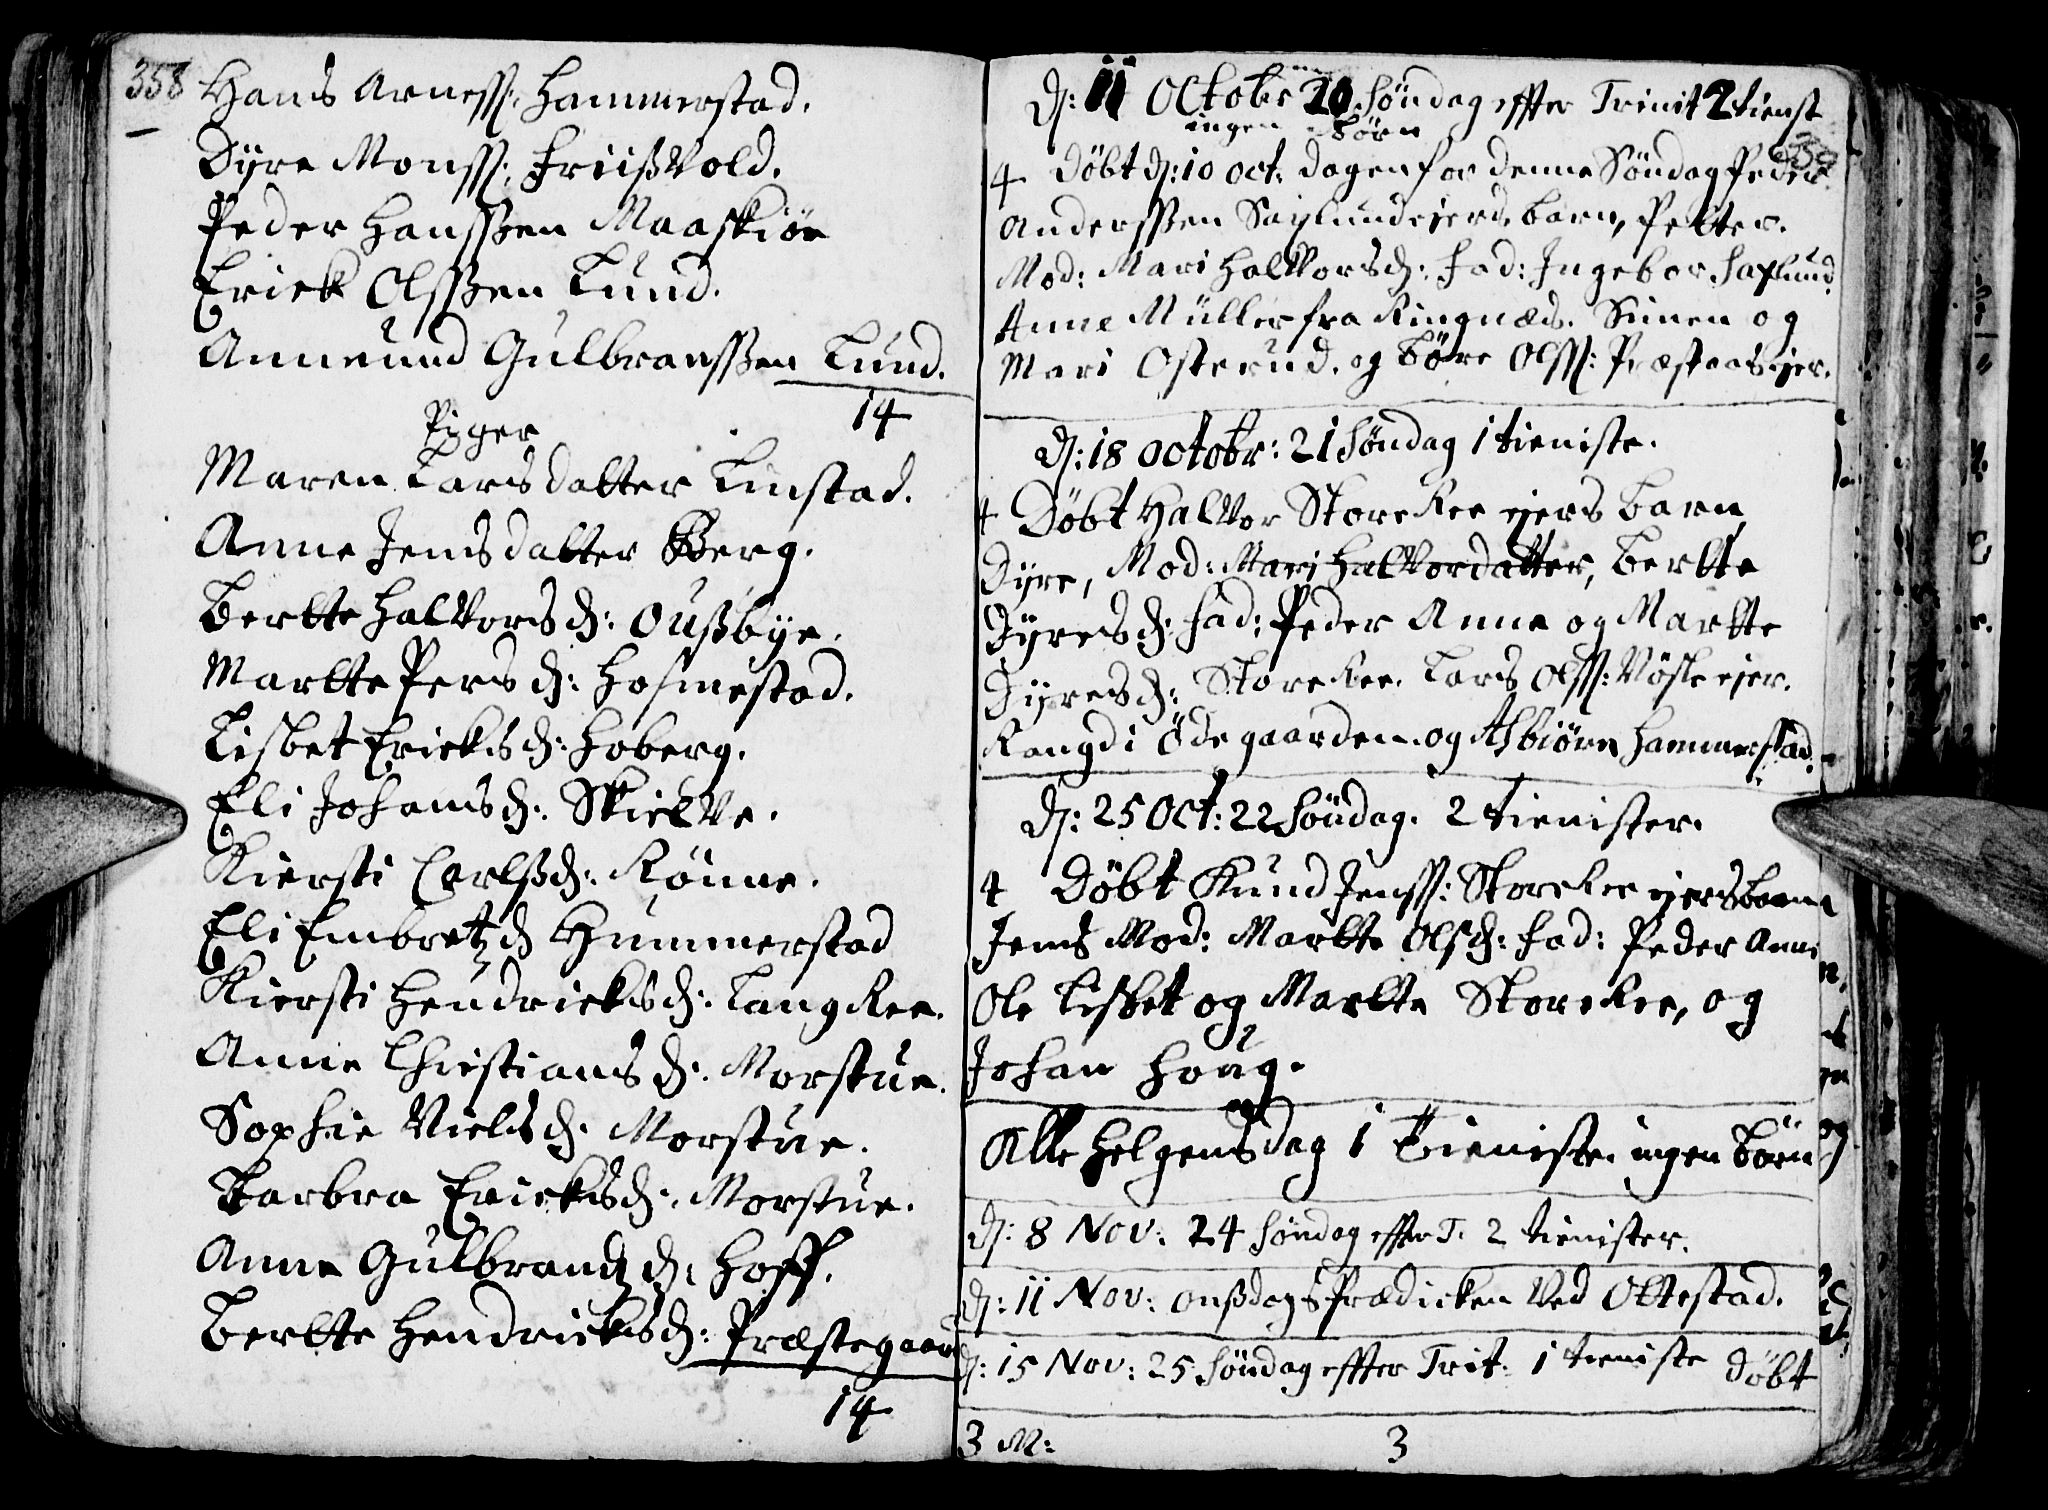 358 Hans Arness: Hammerstad.
Dÿre Monss: Friisvold.
Peder Hanssen Maaskiør
Erick Olssen Lund.
Ammund Gulbranssen Lund.
14
Piger
Maren Larsdatter Linstad.
Anne Jensdatter Berg.
Bertte Halvorsd: Oussbye.
Martte Persd: Hosmestad.
Lisbet Ericksd: Hoberg.
Eli Johansd: Skielve.
Kiersti Carlssd: Rønne.
Eli Embretzd Hummerstad
Kiersti Hendricksd: LangRee.
Anne Christiansd: Morstue.
Sophie Nielsd: Morstue.
Barbra Ericksd: Morstue.
Anne Gulbrandzd: Hoff.
Bertte Hendricksd: Præstegaard
14
359
d: 11 Octobr 20 Søndag effter Trinit 2 tienst
ingen Børn
4 Døbt d: 10 Oct: dagen for denne Søndag Peder
Anderssen Saxlundeierd. barn, Petter.
Mod: Mari Halvorsd: Fad: Ingebor Saxlund.
Anne Müller fra Ringnæs. Simen og
Mari Osterud. og Børe Olss: Præstaaseier.
d: 18 Octobr: 21 Søndag 1 tieniste.
4 Døbt Halvor StoreRee eiers Barn
Dyre, Mod: Mari Halvordatter, Bertte
Dyresd: Fad: Peder Anne og Martte
Dyresd: StoreRee. Lars Olss: Nøsle eier.
Rangdi Ødegaarden. og Asbiørn Hammerstad.
d: 25 Oct: 22 Søndag. 2 tienister.
4 Døbt Knud Jenss: StoreRee eiers barn
Jens Mod: Martte Olsd: Fad: Peder Anne
Ole Lisbet og Martte StoreRee, og
Johan Houg.
Alle Helgensdag 1 Tieniste. ingen Børn
d: 8 Nov: 24 Søndag effter T. 2 tienister.
d: 11 Nov: Onssdags Prædicken ved Ottestad.
d: 15 Nov: 25 Søndag effter Trit: 1 tieniste Døbt
3 M: 3